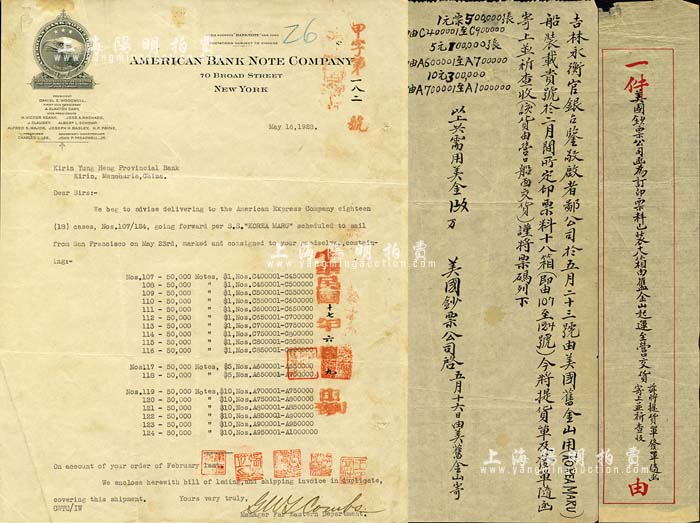 26
甲字第一八二號
CABLE ADDRESS "BANKNOTE" NEW YORK
QUOTATIONS SUBJECT TO CHANGE
AMERICAN BANK NOTE COMPANY
70 BROAD STREET
NEW YORK
PRESIDENT
DANIEL E. WOODHULL
FIRST VICE PRESIDENT
May 16, 1928.
Kirin Yung Heng Provincial Bank
Kirin, Manchuria, China.
Dear Sirs:-
We beg to advise delivering to the American Express Company eighteen
(18) cases, Nos.107/124, going forward per S.S."KOREA MARU" scheduled to sail
from San Francisco on May 23rd, marked and consigned to your goodselves, contain-
ing:-
Nos.107 - 50,000 Notes, $1,Nos.C400001-C450000
108 - 50,000 " $1,Nos.C450001-C500000
109 - 50,000 " $1,Nos.C500001-C550000
110 - 50,000 " $1,Nos.C550001-C600000
111 - 50,000 " $1,Nos.C600001-C650000
112 - 50,000 " $1,Nos.C650001-C700000
113 - 50,000 " $1,Nos.C700001-C750000
114 - 50,000 " $1,Nos.C750001-C800000
115 - 50,000 " $1,Nos.C800001-C850000
116 - 50,000 " $1,Nos.C850001-C900000
Nos.117 - 50,000 " $5,Nos.A600001-A650000
118 - 50,000 " $5,Nos.A650001-A700000
Nos.119 - 50,000 " $10,Nos.A700001-A750000
120 - 50,000 " $10,Nos.A750001-A800000
121 - 50,000 " $10,Nos.A800001-A850000
122 - 50,000 " $10,Nos.A850001-A900000
123 - 50,000 " $10,Nos.A900001-A950000
124 - 50,000 " $10,Nos.A950001-A1000000
On account of your order of February last.
We enclose herewith bill of lading, and shipping invoice in duplicate,
covering this shipment. Yours very truly,
Manager Far Eastern Department.
中華民國十七年六月九日
一件
美國鈔票公司函為訂印票料已裝大箱由舊金山起運至營口交貨
茲將提貨單發單隨函
寄上並祈查收
由
吉林永衡官銀台鑒敬啟者鄙公司於五月二十三號由美國舊金山用KOREA MARU
船裝載貴號於二月間所定印票料十八箱即由107至124號)今將提貨單及發單隨函
寄上並祈查收(該貨由營口船面交貨)謹將票碼列下
1元票500000張
由C400001至C900000
5元100000張
由A600001至A700000
10元300000
由A700001至A1000000
以上共需用美金 万
美國鈔票公司啓 五月十六日由美舊金山寄
上海陽明拍賣
www.yangmingauction.com